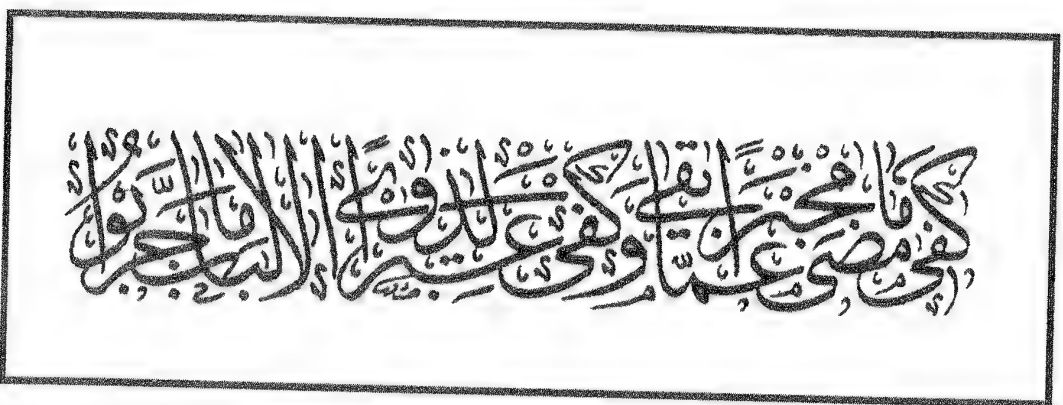 كفى ما مضى مخبرا عما بقى وكفى عبرا لذوى الألباب ما جربوا